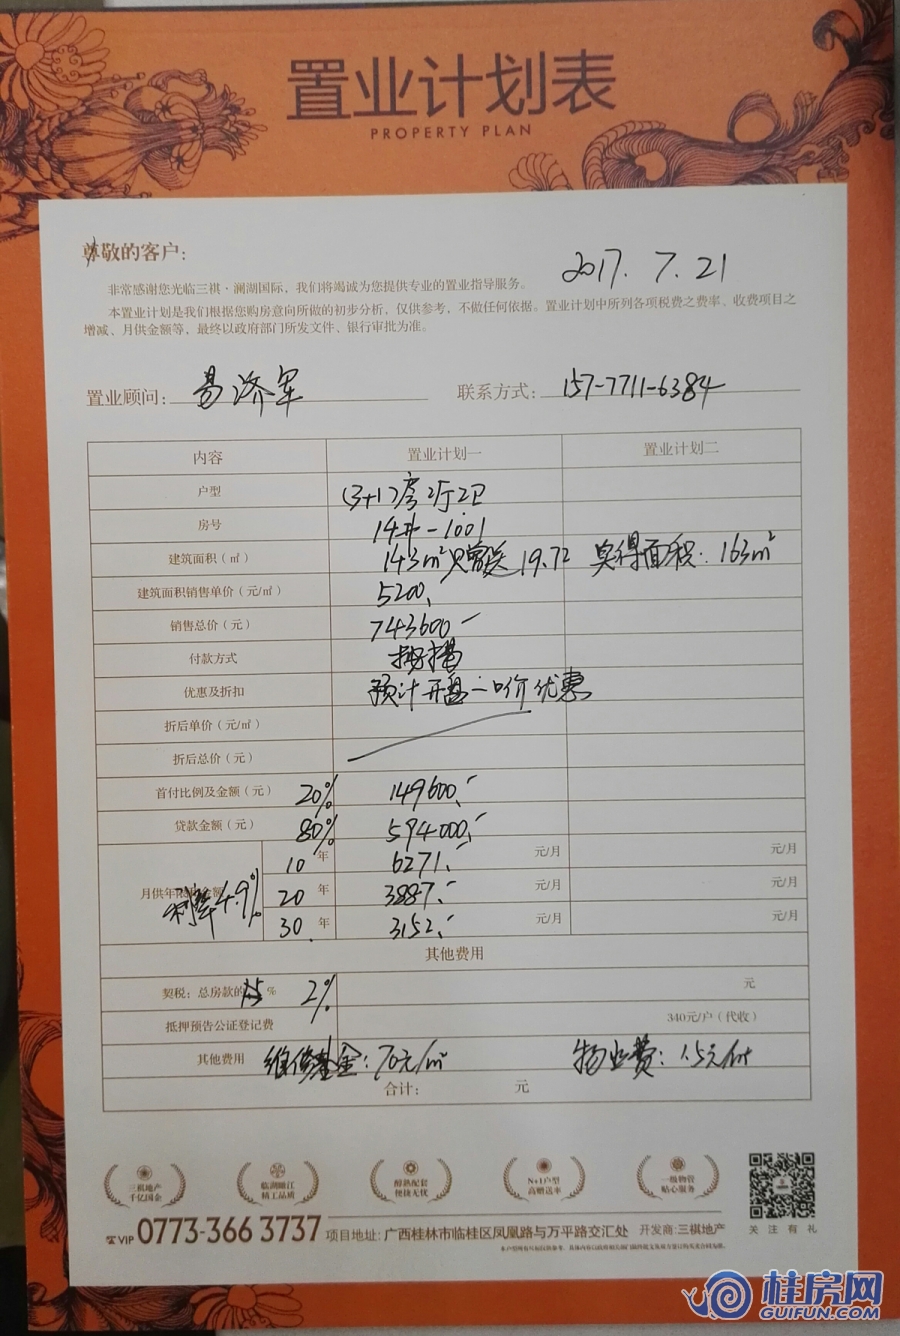 置业计划表
PROPERTY PLAN
尊敬的客户:
2017. 7. 21
非常感谢您光临三祺·澜湖国际，我们将竭诚为您提供专业的置业指导服务。
本置业计划是我们根据您购房意向所做的初步分析，仅供参考，不做任何依据。置业计划中所列各项税费之费率、收费项目之
增减、月供金额等，最终以政府部门所发文件、银行审批为准。
置业顾问: 易济军 联系方式: 157-7711-6384
内容 置业计划一 置业计划二
户型 (3+1)房2厅2卫
房号 14#-1001
建筑面积（㎡） 143m² 只赠送19.72 实得面积: 163m²
建筑面积销售单价（元/㎡） 5200
销售总价（元） 743600
付款方式 按揭
优惠及折扣 预计开盘一口价优惠
折后单价（元/㎡）
折后总价（元）
首付比例及金额（元） 20% 149600
贷款金额（元） 80% 594000
10 年 6271 元/月 元/月
月供年限 金额 利率4.9% 20 年 3887 元/月 元/月
30 年 3152 元/月 元/月
其他费用
契税: 总房款的1.5 % 2% 元
抵押预告公证登记费 340元/户（代收）
其他费用 维修基金: 70元/m² 物业费: 1.5元/m²
合计: 元
三祺地产 千亿国企
临湖瞰江 精工品质
醇熟配套 便捷无忧
N+1户型 高赠送率
一级物管 贴心服务
关注有礼
VIP 0773-366 3737 项目地址: 广西桂林市临桂区凤凰路与万平路交汇处 开发商: 三祺地产
桂房网
GUIFUN.COM